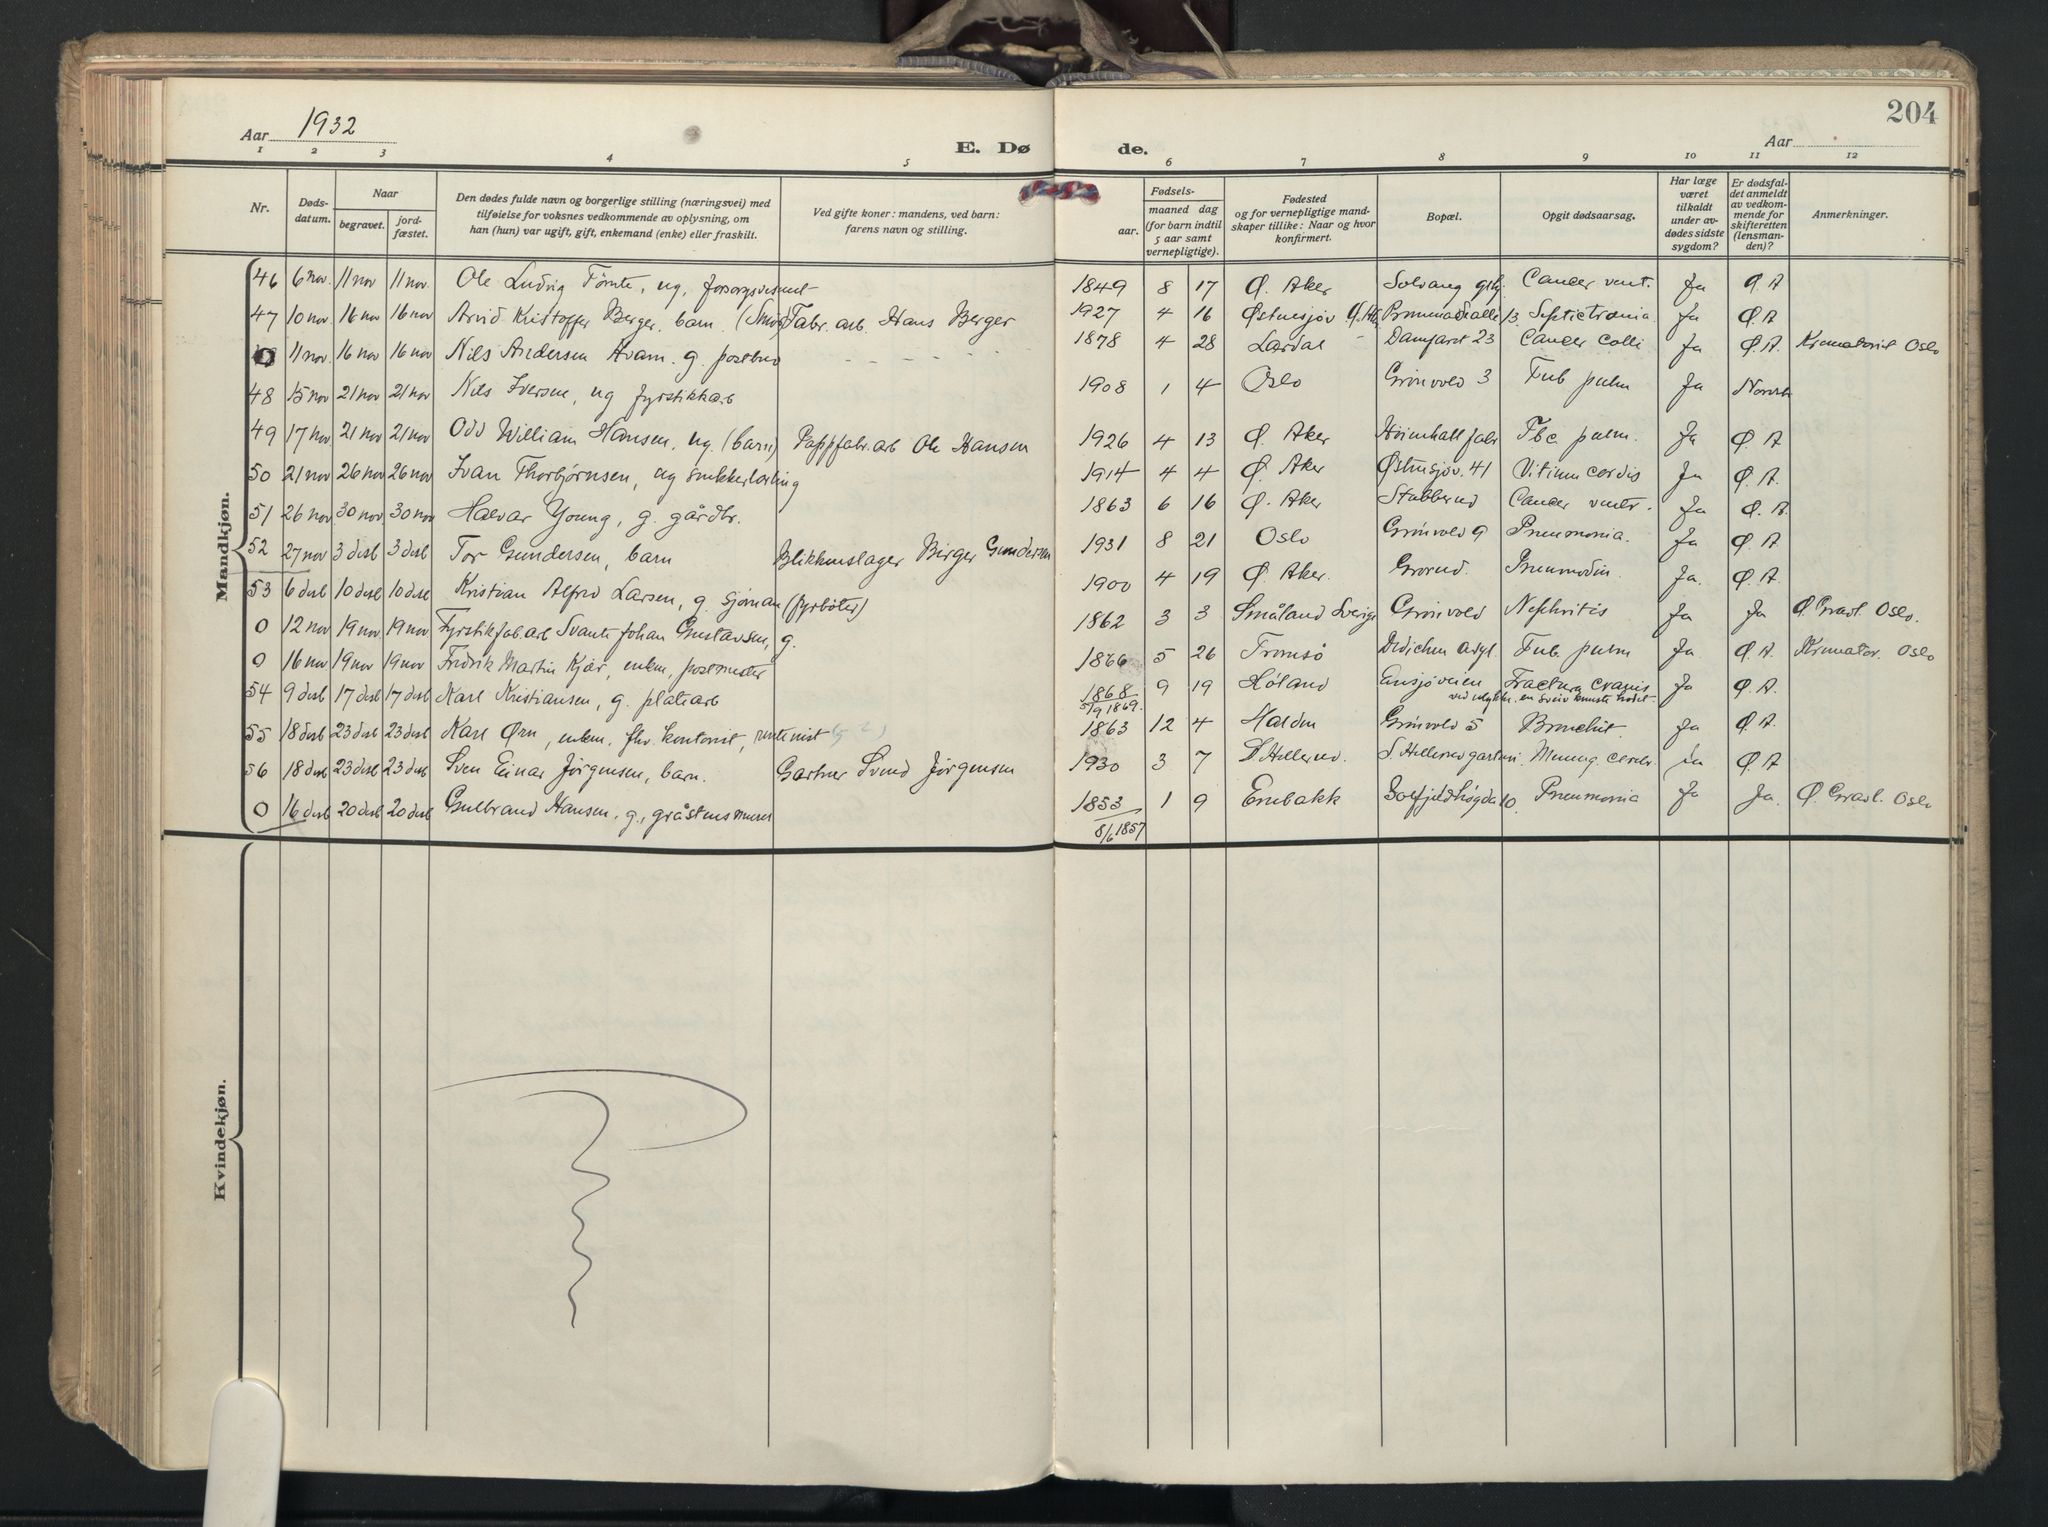 204
Aar 1932
E. Døde.
Aar
1 2 3 4 5 6 7 8 9 10 11 12
Nr.
Dødsdatum.
Naar begravet. jordfæstet.
Den dødes fulde navn og borgerlige stilling (næringsvei) med tilføielse for voksnes vedkommende av oplysning, om han (hun) var ugift, gift, enkemand (enke) eller fraskilt.
Ved gifte koner: mandens, ved barn: farens navn og stilling.
Fødsels- aar. maaned dag (for barn indtil 5 aar samt vernepligtige).
Fødested og for vernepligtige mandskaper tillike: Naar og hvor konfirmert.
Bopæl.
Opgit dødsaarsag.
Har læge været tilkaldt under avdødes sidste sygdom?
Er dødsfaldet anmeldt av vedkommende for skifteretten (lensmanden)?
Anmerkninger.
Mandkjøn.
46 6 nov 11 nov 11 nov. Ole Ludvig Tømte, ug, forsorgsvesenet 1849 8 17 Ø. Aker Solvang Cancer vent. Ja Ø. A
47 10 nov. 16 nov 16 nov. Arvid Kristoffer Berger, barn. Fabr. arb. Hans Berger 1927 4 16 Østensjøv. 13. Ja Ø. A
0 11 nov. 16 nov 16 nov. Nils Andersen Kvam. g. postbud 1878 4 28 Lardal Damfaret 23 Cancer colli Ja Ø. A. Krematoriet Oslo
48 15 nov 21 nov 21 nov Nils Iversen, ug fyrstikkarb 1908 1 4 Oslo Grønvold 3 Tub. pulm Ja
49 17 nov. 21 nov 21 nov Odd William Hansen, ug. (barn) Pappfabr. arb Ole Hansen 1926 4 13 Ø. Aker Høienhall fabr Tbc. pulm. Ja Ø. A
50 21 nov 26 nov 26 nov Ivan Thorbjørnsen, ug snekkerlærling 1914 4 4 Ø. Aker Østensjøv. 41 Vitium cordis Ja Ø. A.
51 26 nov 30 nov. 30 nov. Halvar Young, g. gårdbr. 1863 6 16 Ø. Aker Stubberud Cancer ventr. Ja Ø. A.
52 27 nov 3 desb 3 desb Tor Gundersen, barn Blikkenslager Birger Gundersen 1931 8 21 Oslo Grønvold 9 Pneumonia. Ja Ø. A.
53 6 desb 10 desb 10 desb Kristian Alfred Larsen, g. sjøman (fyrbøter) 1900 4 19 Ø. Aker. Grorud. Ja. Ø. A.
0 12 nov 19 nov. 19 nov. Fyrstikfab. arb Svante Johan Gustavsen, g. 1862 3 3 Småland Sverige Grønvold Nephritis Ja Ja Ø. Gravl. Oslo.
0 16 nov 19 nov 19 nov Fredrik Martin Kjær, enkem, postmester 1866 5 26 Tromsø Dedichen Tub. pulm Ja Ø. A. Kremator. Oslo
54 9 desb 17 desb 17 desb Karl Kristiansen, g. platearb 1868 5/9 1869. 9 19 Høland Ensjøveien Fractura cranis Ja Ø. A.
55 18 desb 23 desb 23 desb Karl Ørn, enkem. fhv. kontorist, rentenist 1863 12 4 Halden Grønvold 5 Bronchit Ja Ø. A.
56 18 desb 23 desb 23 desb Sven Einar Jørgensen, barn. Gartner Svend Jørgensen 1930 3 7 S. Hellerud. S. Hellerud gartneri. Mening. cerebr. Ja Ø. A
0 16 desb 20 desb 20 desb Gulbrand Hansen, g., gråstensmurer 1853 8/6 1857 1 9 Enebakk Solfjeldhøgda 10. Pneumonia Ja Ja. Ø. Gravl. Oslo
Kvindekjøn.